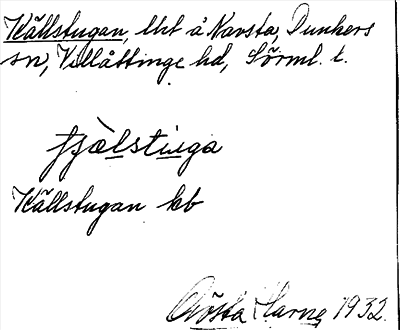 Källstugan, lht å Navsta, Dunkers
sn, Villåttinge hd, Sörml. l.
fjælstuga
Källstugan kb
Gösta Harne 1932.